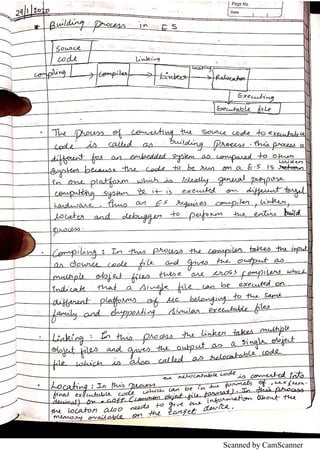 Page No.
Date
29/1/2020
* Building process in ES
Source
code
Linking
compiling
Compiler
Linker
Relocator
Executing
Executable file
The process of converting the source code to executable
code is called as building process. This process is
different for an embedded system as compared to other
system because the code to be run on a E-S is
in one platform which is ideally general purpose
computing system & it is executed on different target
hardware. Thus an ES requires compiler, linker,
locater and debugger to perform the entire build
process.
Compiling: In this process the compiler takes the input
as source code file and gives the output as
multiple object files these are cross compilers which
indicate that a single file can be executed on
different platforms of MC belonging to the same
family and supporting similar executable files
Linking: In this process the linker takes multiple
object files and gives the output as a single object
file which is also called as relocatable code.
Locating: In this process the relocatable code is converted into
final executable code which can be in the formats of .hex (hexa
decimal) or COFF (common object file format). In this process
the locator also needs to give the information about the
memory available on the target device.
Scanned by CamScanner